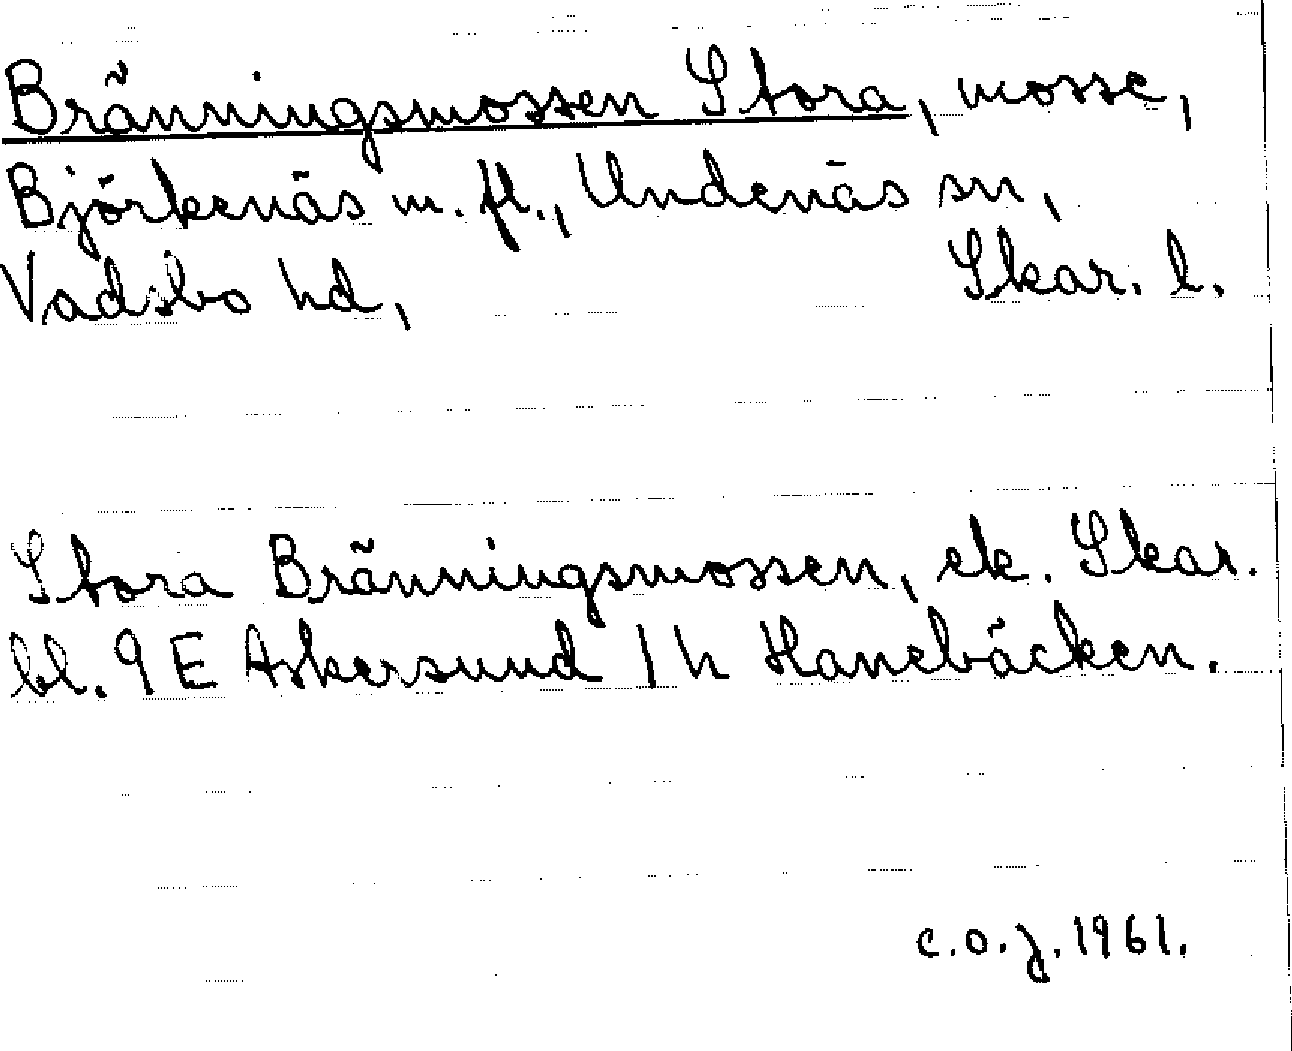 Bränningsmossen Stora, mosse,
Björkenäs m. fl., Undenäs sn,
Vadsbo hd, Skar. l.
Stora Bränningsmossen, ek. Skar.
bl. 9 E Askersund 1 h Hanebäcken.
c.o.j. 1961.